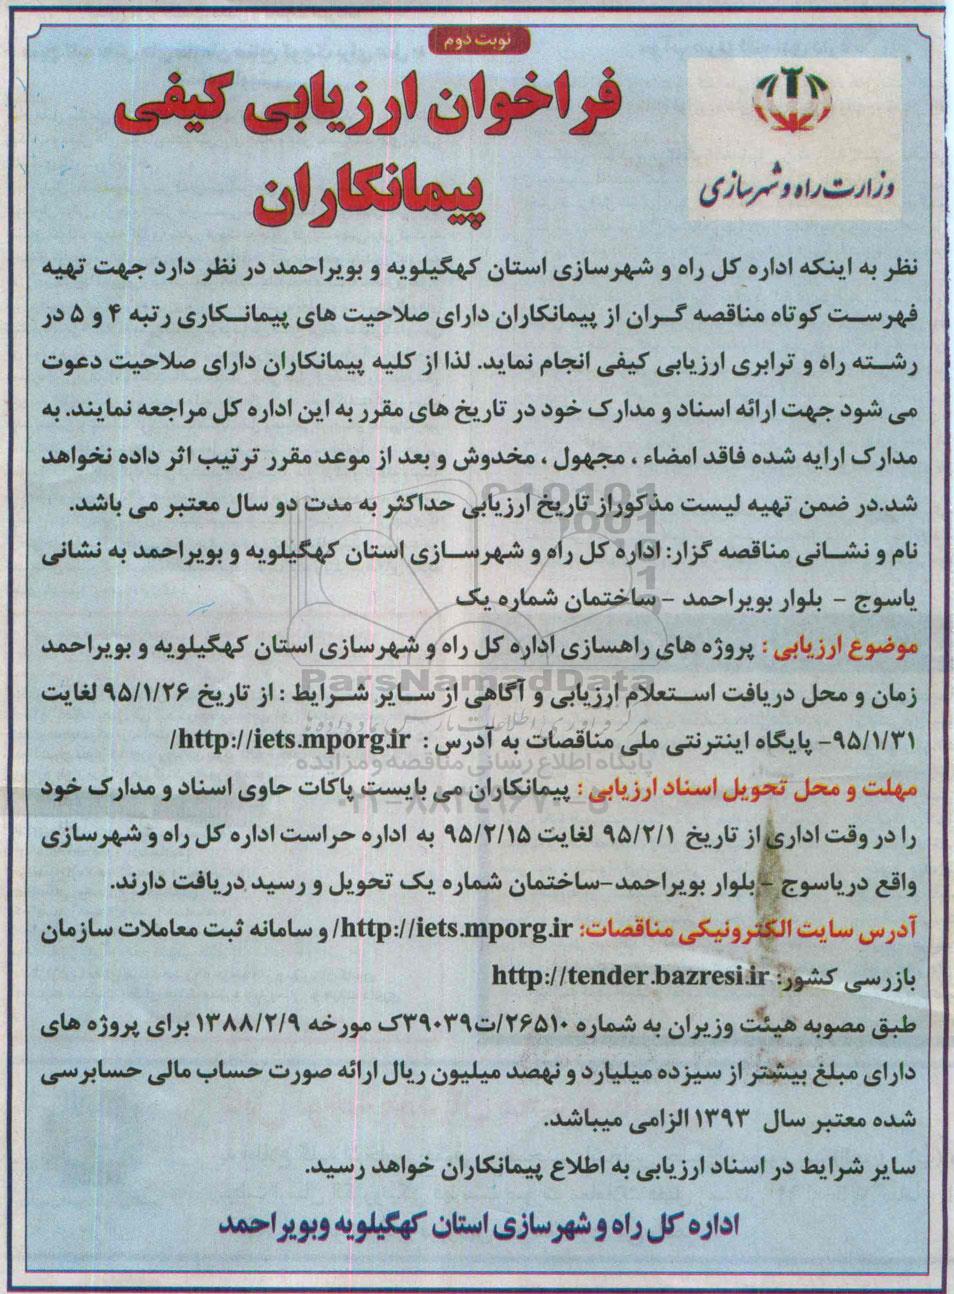 نوبت دوم
فراخوان ارزیابی کیفی
پیمانکاران
وزارت راه و شهرسازی
نظر به اینکه اداره کل راه و شهرسازی استان کهگیلویه و بویراحمد در نظر دارد جهت تهیه
فهرست کوتاه مناقصه گران از پیمانکاران دارای صلاحیت های پیمانکاری رتبه ۴ و ۵ در
رشته راه و ترابری ارزیابی کیفی انجام نماید. لذا از کلیه پیمانکاران دارای صلاحیت دعوت
می شود جهت ارائه اسناد و مدارک خود در تاریخ های مقرر به این اداره کل مراجعه نمایند. به
مدارک ارایه شده فاقد امضاء ، مجهول ، مخدوش و بعد از موعد مقرر ترتیب اثر داده نخواهد
شد.در ضمن تهیه لیست مذکوراز تاریخ ارزیابی حداکثر به مدت دو سال معتبر می باشد.
نام و نشانی مناقصه گزار: اداره کل راه و شهرسازی استان کهگیلویه و بویراحمد به نشانی
یاسوج - بلوار بویراحمد - ساختمان شماره یک
موضوع ارزیابی : پروژه های راهسازی اداره کل راه و شهرسازی استان کهگیلویه و بویراحمد
زمان و محل دریافت استعلام ارزیابی و آگاهی از سایر شرایط : از تاریخ ۹۵/۱/۲۶ لغایت
۹۵/۱/۳۱- پایگاه اینترنتی ملی مناقصات به آدرس : http://iets.mporg.ir/
مهلت و محل تحویل اسناد ارزیابی : پیمانکاران می بایست پاکات حاوی اسناد و مدارک خود
را در وقت اداری از تاریخ ۹۵/۲/۱ لغایت ۹۵/۲/۱۵ به اداره حراست اداره کل راه و شهرسازی
واقع دریاسوج - بلوار بویراحمد-ساختمان شماره یک تحویل و رسید دریافت دارند.
آدرس سایت الکترونیکی مناقصات: http://iets.mporg.ir/ و سامانه ثبت معاملات سازمان
بازرسی کشور: http://tender.bazresi.ir
طبق مصوبه هیئت وزیران به شماره ۲۶۵۱۰/ت۳۹۰۳۹ک مورخه ۱۳۸۸/۲/۹ برای پروژه های
دارای مبلغ بیشتر از سیزده میلیارد و نهصد میلیون ریال ارائه صورت حساب مالی حسابرسی
شده معتبر سال ۱۳۹۳ الزامی میباشد.
سایر شرایط در اسناد ارزیابی به اطلاع پیمانکاران خواهد رسید.
اداره کل راه و شهرسازی استان کهگیلویه وبویراحمد
ParsNamadData
پایگاه اطلاع رسانی مناقصه و مزایده